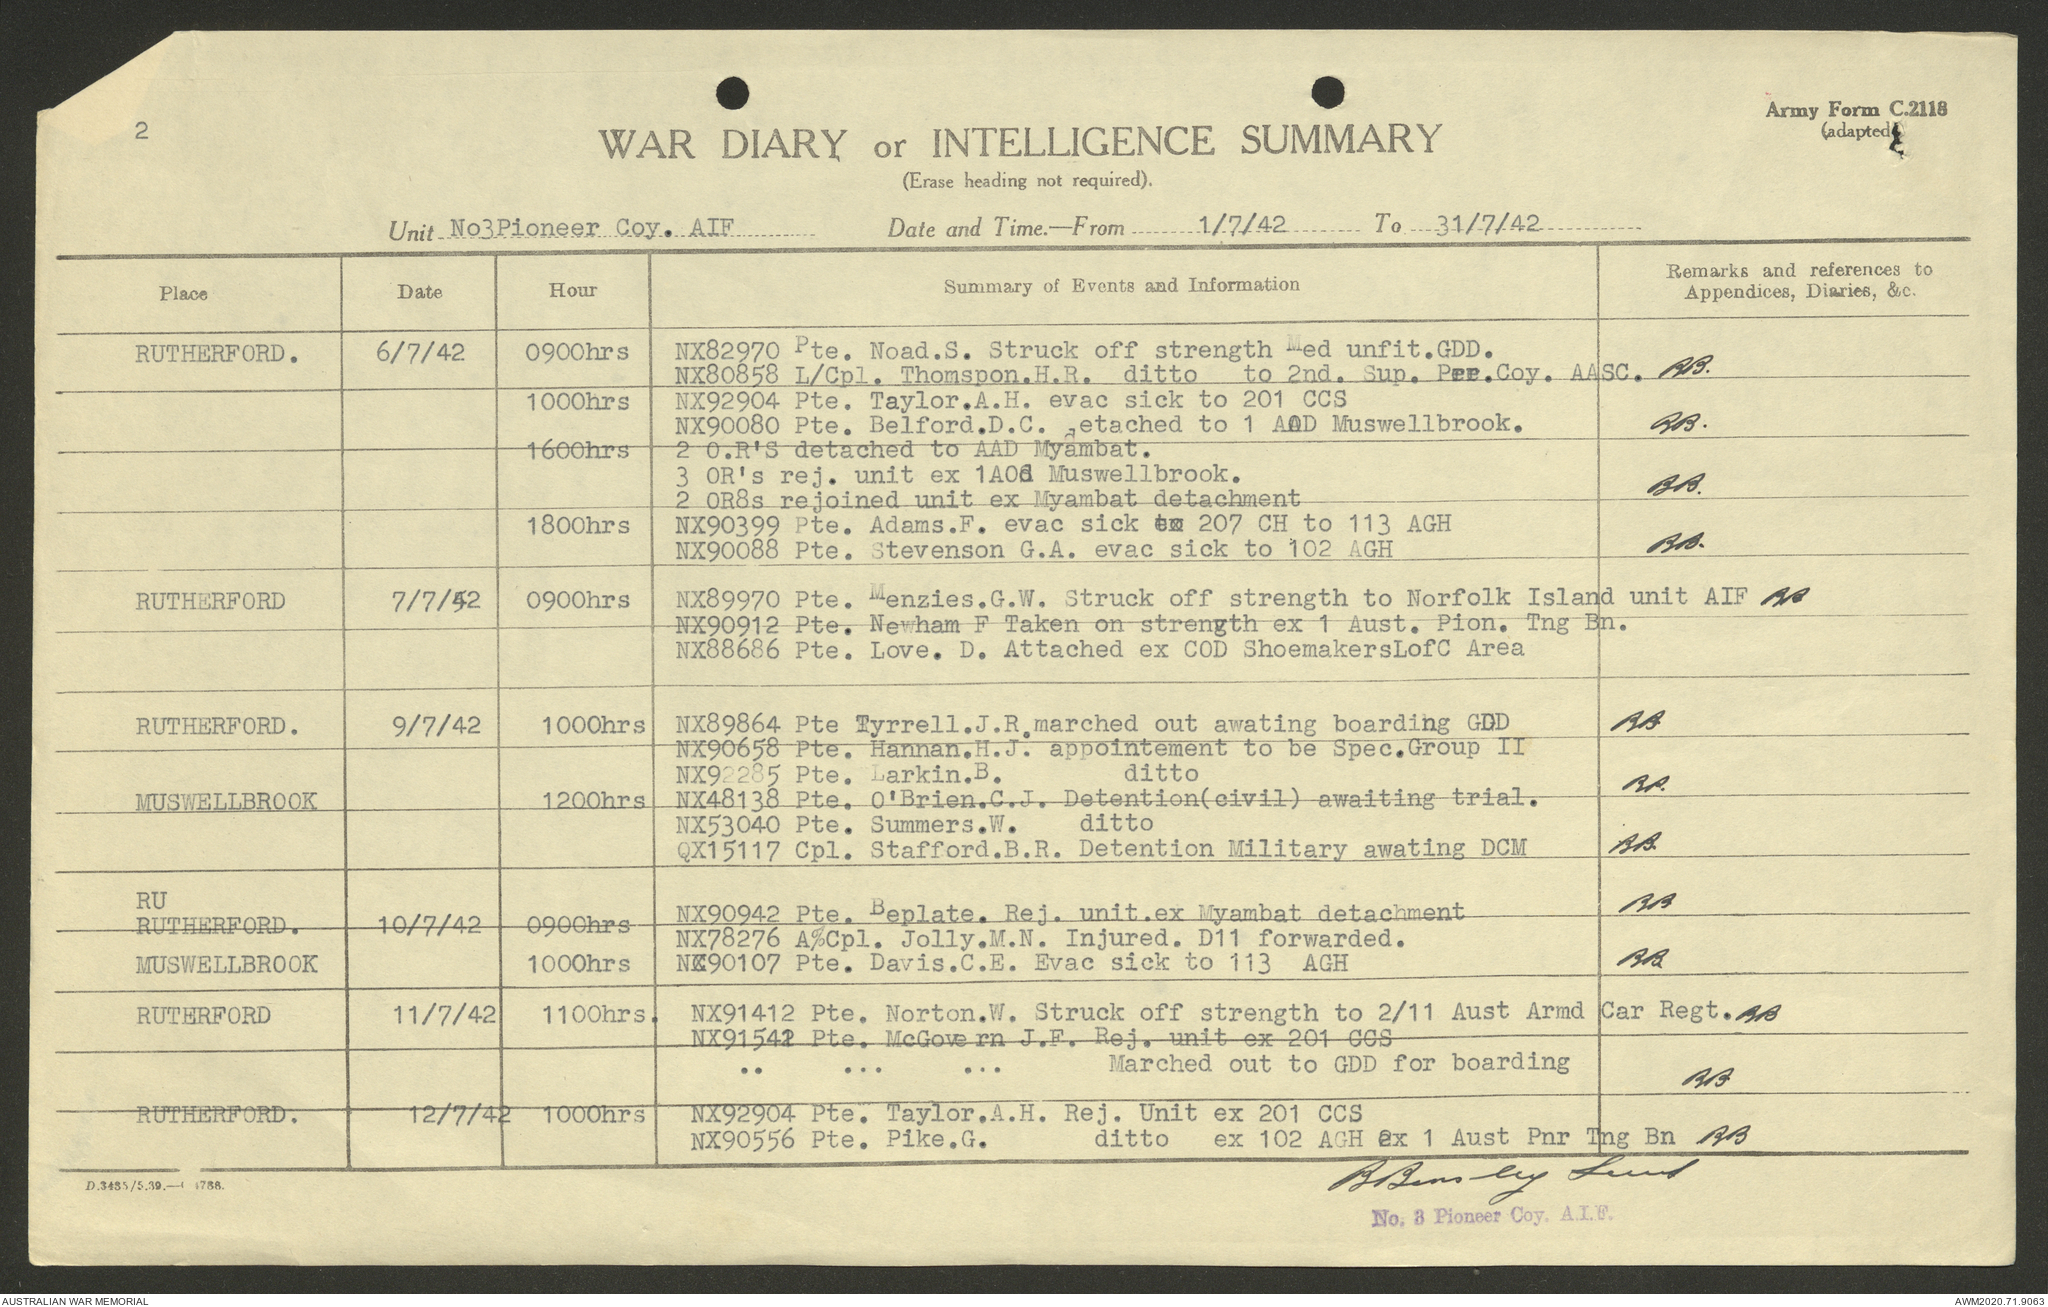 2
Army Form C.2118
(adapted)
WAR DIARY or INTELLIGENCE SUMMARY
(Erase heading not required).
Unit No3Pioneer Coy. AIF Date and Time.—From 1/7/42 To 31/7/42
Place Date Hour Summary of Events and Information Remarks and references to
Appendices, Diaries, &c.
RUTHERFORD. 6/7/42 0900hrs NX82970 Pte. Noad.S. Struck off strength Med unfit.GDD.
NX80858 L/Cpl. Thomspon.H.R. ditto to 2nd. Sup. Coy. AASC. RB.
1000hrs NX92904 Pte. Taylor.A.H. evac sick to 201 CCS
NX90080 Pte. Belford.D.C. detached to 1 AOD Muswellbrook. RB.
1600hrs 2 O.R'S detached to AAD Myambat.
3 OR's rej. unit ex 1AOd Muswellbrook.
2 OR8s rejoined unit ex Myambat detachment RB.
1800hrs NX90399 Pte. Adams.F. evac sick ex 207 CH to 113 AGH
NX90088 Pte. Stevenson G.A. evac sick to 102 AGH RB.
RUTHERFORD 7/7/42 0900hrs NX89970 Pte. Menzies.G.W. Struck off strength to Norfolk Island unit AIF RB
NX90912 Pte. Newham F Taken on strength ex 1 Aust. Pion. Tng Bn.
NX88686 Pte. Love. D. Attached ex COD ShoemakersLofC Area
RUTHERFORD. 9/7/42 1000hrs NX89864 Pte Tyrrell.J.R.marched out awating boarding GDD RB
NX90658 Pte. Hannan.H.J. appointement to be Spec.Group II
NX92285 Pte. Larkin.B. ditto RB.
MUSWELLBROOK 1200hrs NX48138 Pte. O'Brien.C.J. Detention(civil) awaiting trial.
NX53040 Pte. Summers.W. ditto
QX15117 Cpl. Stafford.B.R. Detention Military awating DCM RB.
RU
RUTHERFORD. 10/7/42 0900hrs NX90942 Pte. Beplate. Rej. unit.ex Myambat detachment RB
NX78276 A/Cpl. Jolly.M.N. Injured. D11 forwarded.
MUSWELLBROOK 1000hrs NX90107 Pte. Davis.C.E. Evac sick to 113 AGH RB
RUTERFORD 11/7/42 1100hrs. NX91412 Pte. Norton.W. Struck off strength to 2/11 Aust Armd Car Regt. RB
NX91542 Pte. McGovern J.F. Rej. unit ex 201 CCS
.. ... ... Marched out to GDD for boarding RB
RUTHERFORD. 12/7/42 1000hrs NX92904 Pte. Taylor.A.H. Rej. Unit ex 201 CCS
NX90556 Pte. Pike.G. ditto ex 102 AGH ex 1 Aust Pnr Tng Bn RB
BBensley Lieut
No. 3 Pioneer Coy. A.I.F.
D.3485/5.39.—
AUSTRALIAN WAR MEMORIAL
AWM2020.71.9063